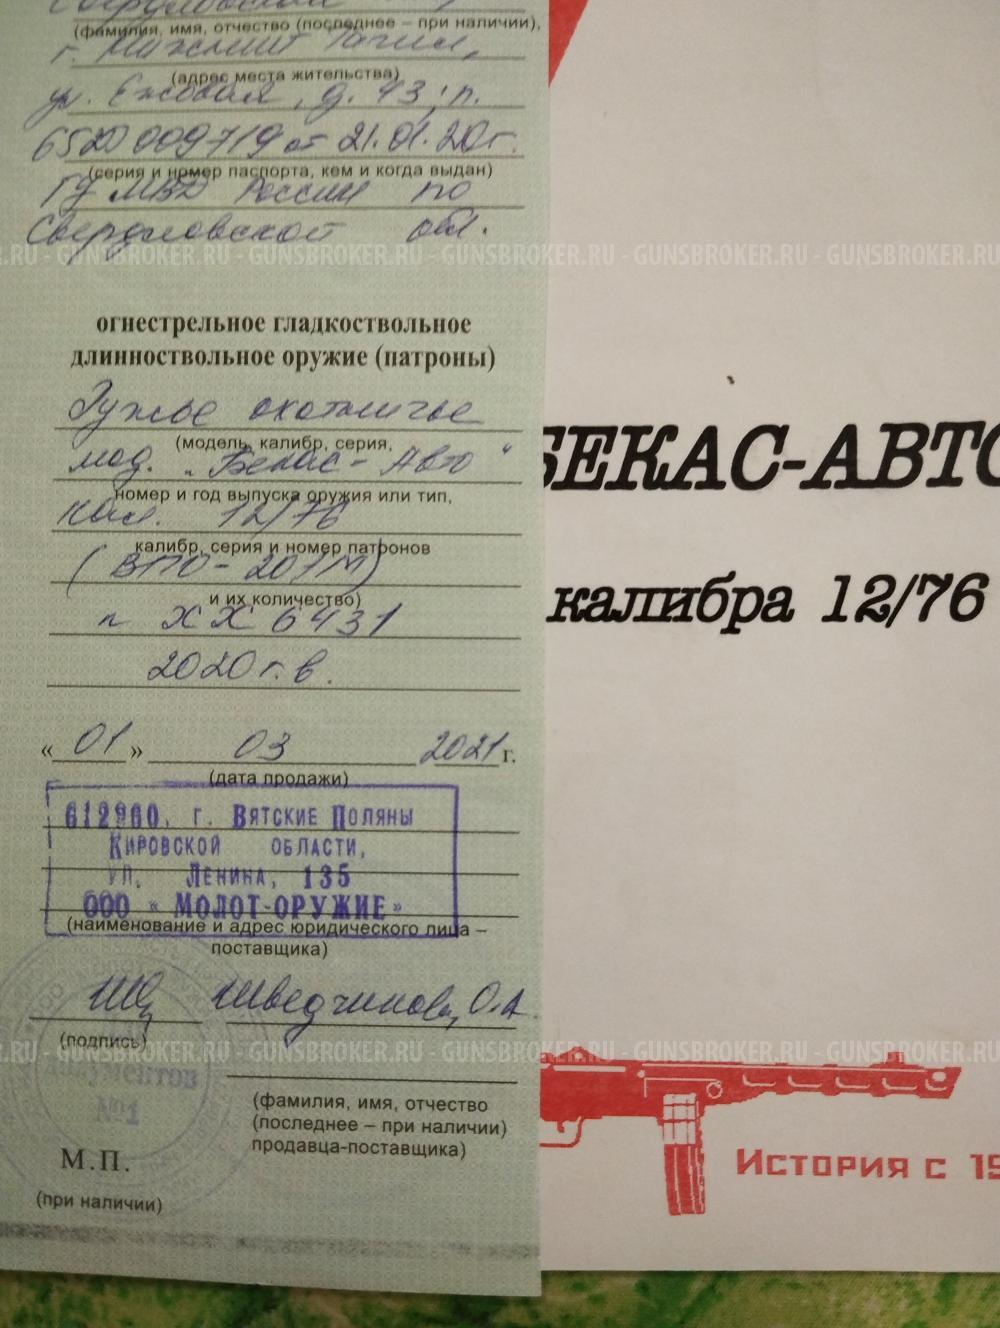 (фамилия, имя, отчество (последнее – при наличии),
г. Нижний Тагил,
(адрес места жительства)
ул. Ежовая, д. 43, п.
6520 009719 от 21.01.20г.
(серия и номер паспорта, кем и когда выдан)
ГУ МВД России по
Свердловской обл.
GUNSBROKER.RU - GUNSBROKER.RU - GUNSBROKER.RU - GUNSBROKER.RU
огнестрельное гладкоствольное
длинноствольное оружие (патроны)
Ружье охотничье
(модель, калибр, серия,
мод. "Бекас - Авто"
номер и год выпуска оружия или тип,
кал. 12/76
калибр, серия и номер патронов
(ВПО-207М)
и их количество)
n XX 6431
2020 г.в.
« 01 » 03 2021 г.
(дата продажи)
612960, г. Вятские Поляны
Кировской области,
ул. Ленина, 135
ООО «МОЛОТ-ОРУЖИЕ»
(наименование и адрес юридического лица –
поставщика)
О.А.
(подпись)
GUNSBROKER.RU - GUNSBROKER.RU - GUNSBROKER.RU - GUNSBROKER.RU
документов
№1
(фамилия, имя, отчество
(последнее – при наличии)
продавца-поставщика)
М.П.
(при наличии)
БЕКАС-АВТО
калибра 12/76
История с 19